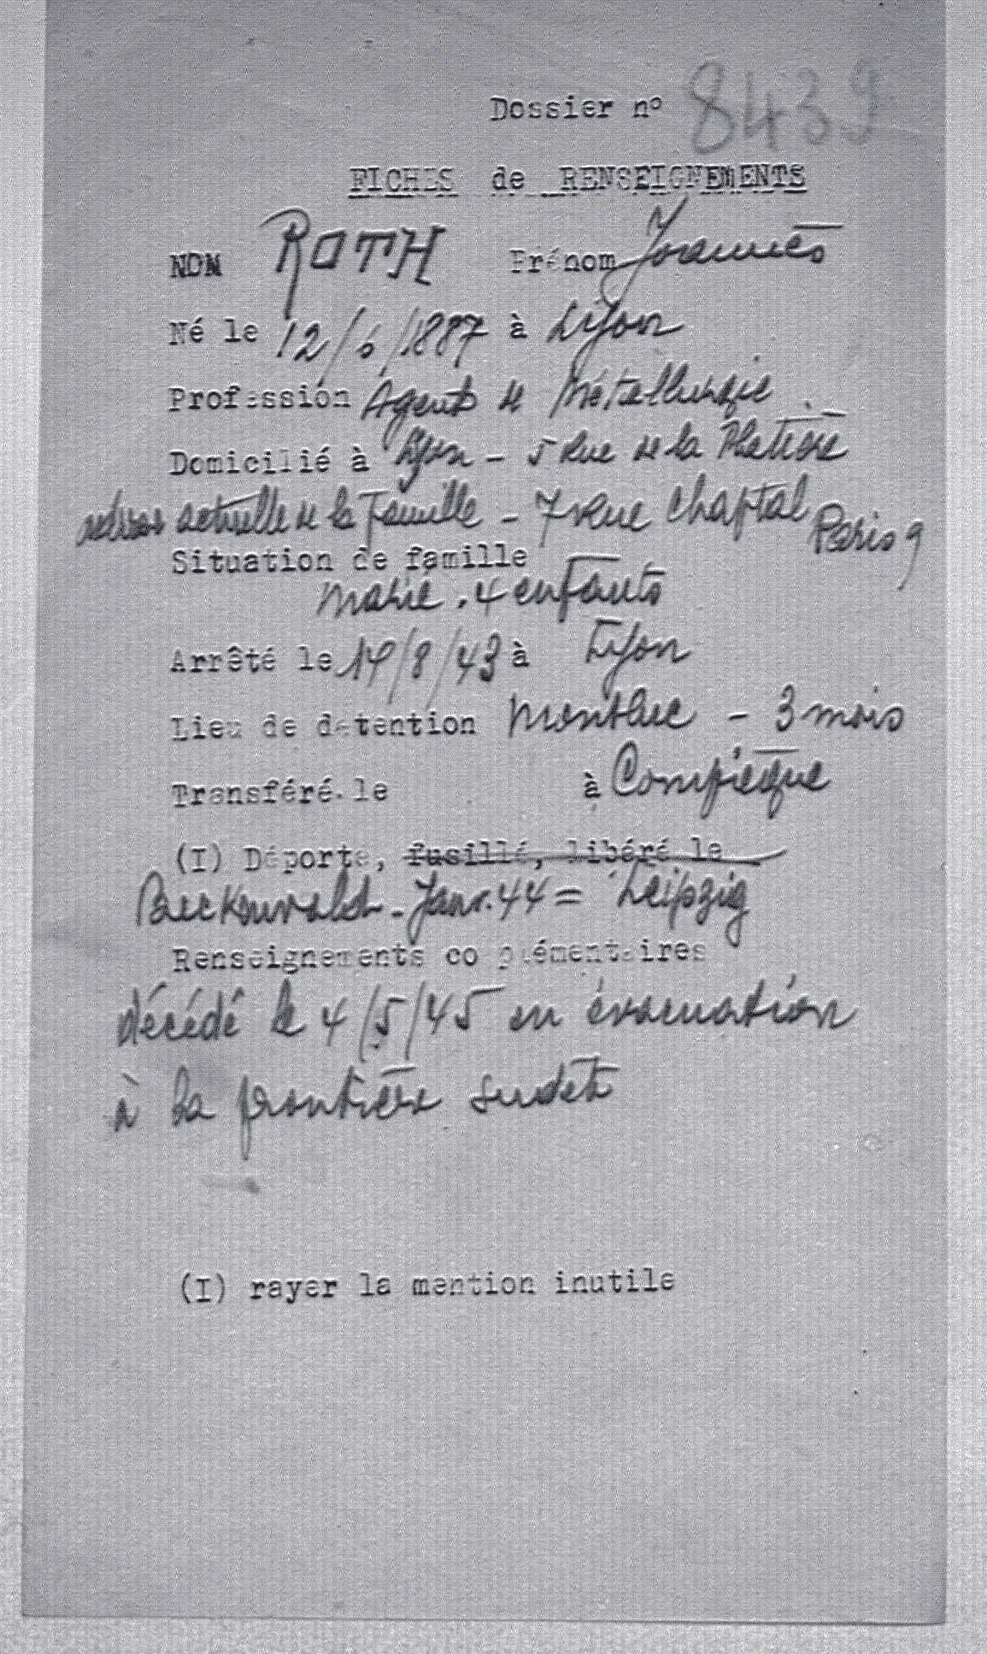 Dossier n° 8439
FICHES de RENSEIGNEMENTS
NOM ROTH Prénom Joannès
Né le 12/6/1887 à Lyon
Profession Agent de Métallurgie
Domicilié à Lyon - 5 Rue de la Platière
adresse actuelle de la famille - 7 Rue Chaptal Paris 9
Situation de famille
marié. 4 enfants
Arrêté le 14/8/43 à Lyon
Lieu de détention Montluc - 3 mois
Transféré le à Compiègne
(I) Déporté, fusillé, libéré le
Buckenwald - Janv. 44 = Leipzig
Renseignements complémentaires
décédé le 4/5/45 en évacuation
à la frontière sudète
(I) rayer la mention inutile